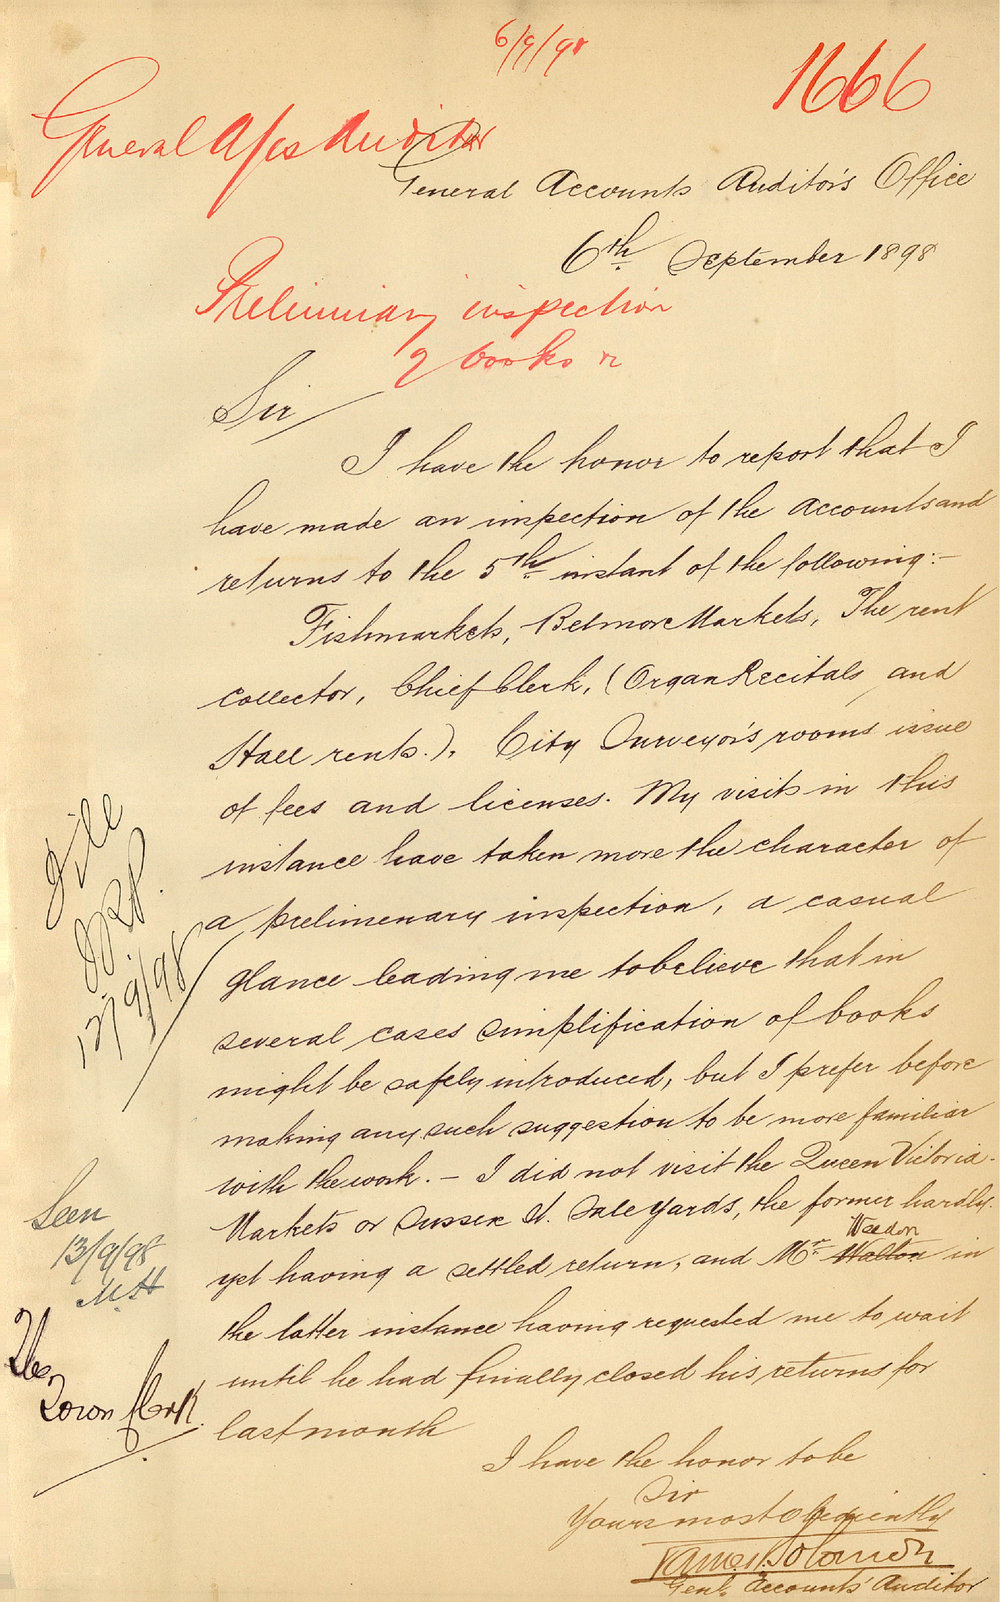 6/9/98
1666
General A/cs Auditor
General Accounts Auditor's Office
6th September 1898
Preliminary inspection
of books &c
Sir
I have the honor to report that I
have made an inspection of the accounts and
returns to the 5th instant of the following:-
Fishmarkets, Belmore Markets, The rent
collector, Chief Clerk, (Organ Recitals and
Stall rents.), City Surveyor's rooms issue
of fees and licenses. My visits in this
instance have taken more the character of
a prelimenary inspection, a casual
glance leading me to believe that in
several cases simplification of books
might be safely introduced, but I prefer before
making any such suggestion to be more familiar
with the work. - I did not visit the Queen Victoria
Markets or Sussex St. Sale yards, the former hardly
yet having a settled return, and Mr. Walton Weedon in
the latter instance having requested me to wait
until he had finally closed his returns for
last month
I have the honor to be
Sir
Yours most obediently
Genl. Accounts' Auditor
File
12/9/98
Seen
13/9/98
The
Town Clerk